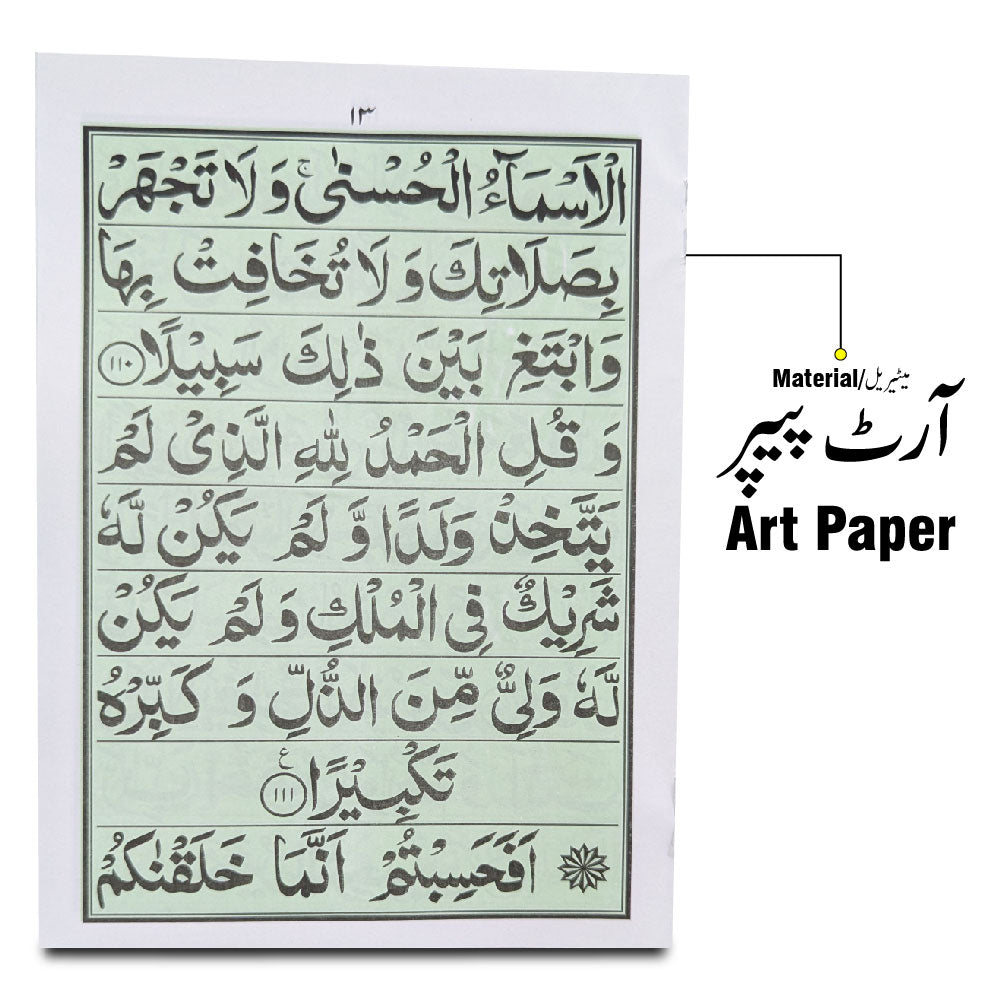 ١٣
الْاَسْمَآءُ الْحُسْنٰىۚ وَ لَا تَجْهَرْ
بِصَلَاتِكَ وَ لَا تُخَافِتْ بِهَا
وَ ابْتَغِ بَيْنَ ذٰلِكَ سَبِيْلًا ١١٠
وَ قُلِ الْحَمْدُ لِلّٰهِ الَّذِىْ لَمْ
يَتَّخِذْ وَلَدًا وَّ لَمْ يَكُنْ لَّهٗ
شَرِيْكٌ فِى الْمُلْكِ وَ لَمْ يَكُنْ
لَّهٗ وَلِىٌّ مِّنَ الذُّلِّ وَ كَبِّرْهُ
تَكْبِيْرًا ١١١ ع
اَفَحَسِبْتُمْ اَنَّمَا خَلَقْنٰكُمْ
Material/میٹیریل
آرٹ پیپر
Art Paper